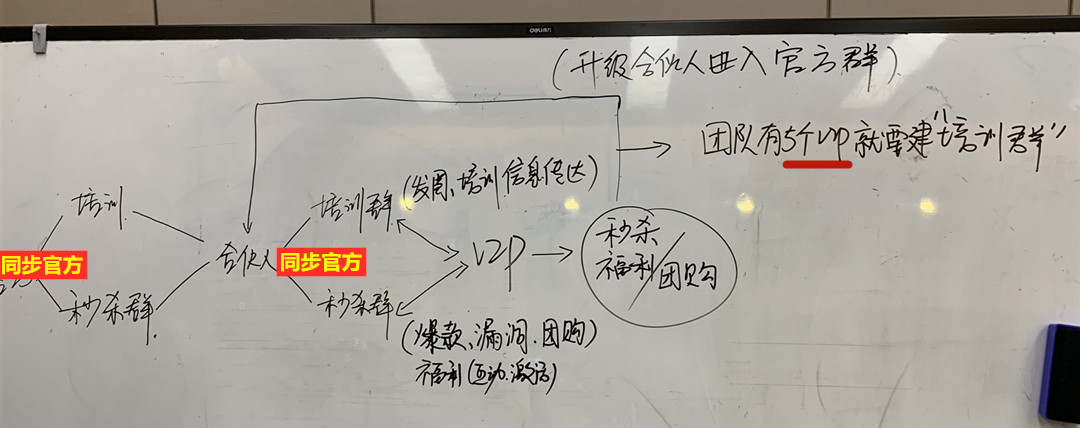 deli得力
(升级合伙人进入官方群)
团队有5个VIP就要建"培训群"
培训
培训群
(发圈、培训信息传达)
秒杀
福利/团购
同步官方
合伙人
同步官方
VIP
秒杀群
秒杀群
(爆款、漏洞、团购)
福利(互动、激活)